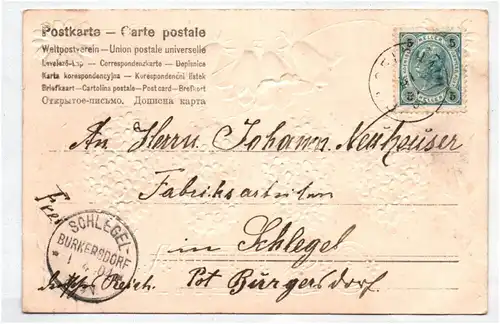 Postkarte – Carte postale
Weltpostverein – Union postale universelle
Levelező-Lap – Correspondenzkarte – Dopisnice
Karta korespondencyjna – Korespondenčni listek
Briefkaart – Cartolina postale – Post card – Brefkort
Открытое-письмо. Дописна карта
5 5
An Herrn Johann Neuhäuser
Fabriksarbeiter
Frei
in Schlegel
SCHLEGEL-
BURKERSDORF
Deutsches Reich. Pot Burgersdorf.